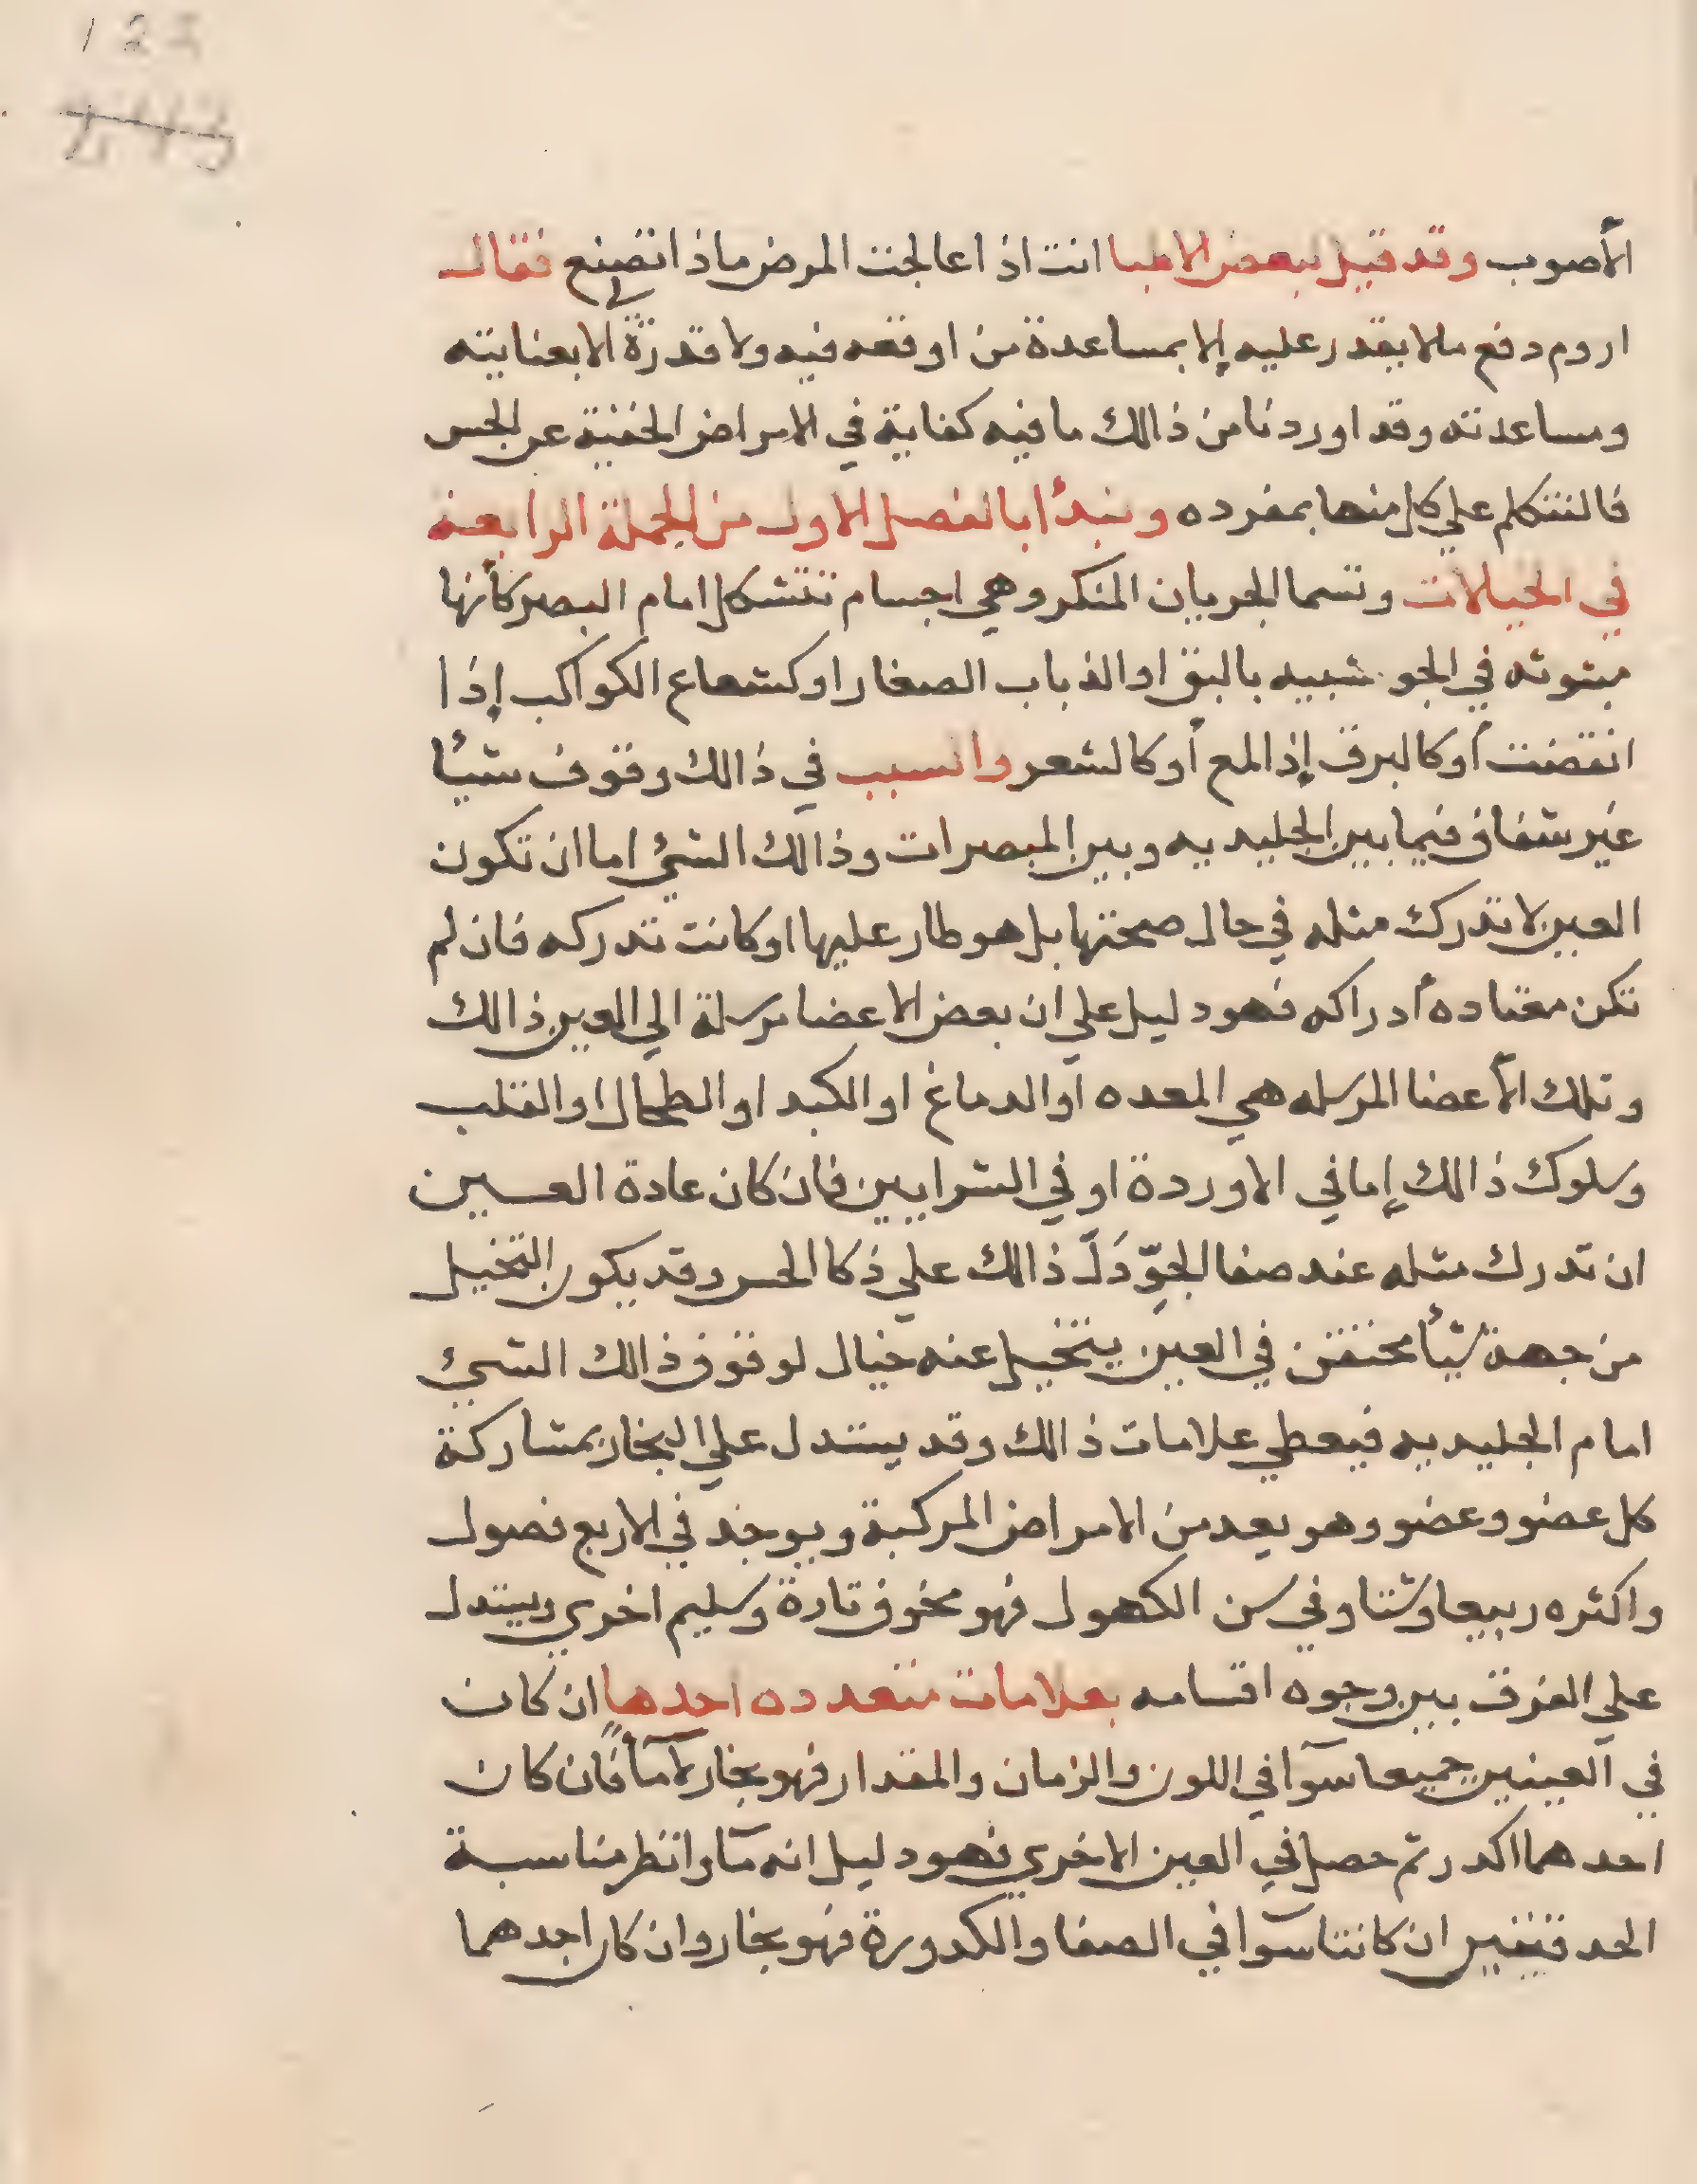 الأصوب وقد قيل لبعض الاطبا انت اذا عالجت المرض ماذا تصنع فقال
اروم دفع ملا يقدر عليه إلا بمساعدة من اوقعه فيه ولا قدرة لي الا بعنايته
ومساعدته وقد اوردنا من ذالك ما فيه كفاية في الامراض الخفية عن الحس
فالنتكلم علي كل منها بمفرده ونبدأ بالفصل الاول من الجملة الرابعة
في الخيلات وتسما الجريان المنكر وهي اجسام تتشكل امام البصر كأنها
مبثوثه في الجو شبيه بالبق او الذباب الصغار او كشعاع الكواكب إذا
انقضت أو كالبرق إذا لمع أو كالشعر والسبب في ذالك وقوف شيأ
غير شفاف فيما بين الجليديه وبين المبصرات وذالك الشيئ اما ان تكون
العين لا تدرك مثله في حال صحتها بل هو طار عليها او كانت تدركه فان لم
تكن معتاده أدراكه فهو دليل علي ان بعض الاعضا مرسلة الي العين ذالك
وتلك الأعضا المرسله هي المعده أو الدماغ او الكبد او الطحال او القلب
وسلوك ذالك إما في الاوردة او في الشرايين فان كان عادة العين
ان تدرك مثله عند صفا الجوّ دَلّ ذالك علي ذكا الحس وقد يكون التخيل
من جهة شيأ محتقن في العين يتخيل عنه خيال لوقوف ذالك الشيئ
امام الجليديه فيعطي علامات ذالك وقد يستدل علي البخار بمشاركة
كل عضو وعضو وهو يعد من الامراض المركبة ويوجد في الاربع فصول
واكثره ربيعا وشتا وفي سن الكهول فهو مخوف تارة وسليم اخري ويستدل
علي الفرق بين وجوه اقسامه بعلامات متعدده احدها ان كان
في العينين جميعا سوآ في اللون والزمان والمقدار فهو بخار لا مآ فان كان
احدهما اكدر ثم حصل في العين الاخري فهو دليل انه مآ وانظر مناسبة
الحدقتين ان كانتا سوآ في الصفا والكدورة فهو بخار وان كان احدهما